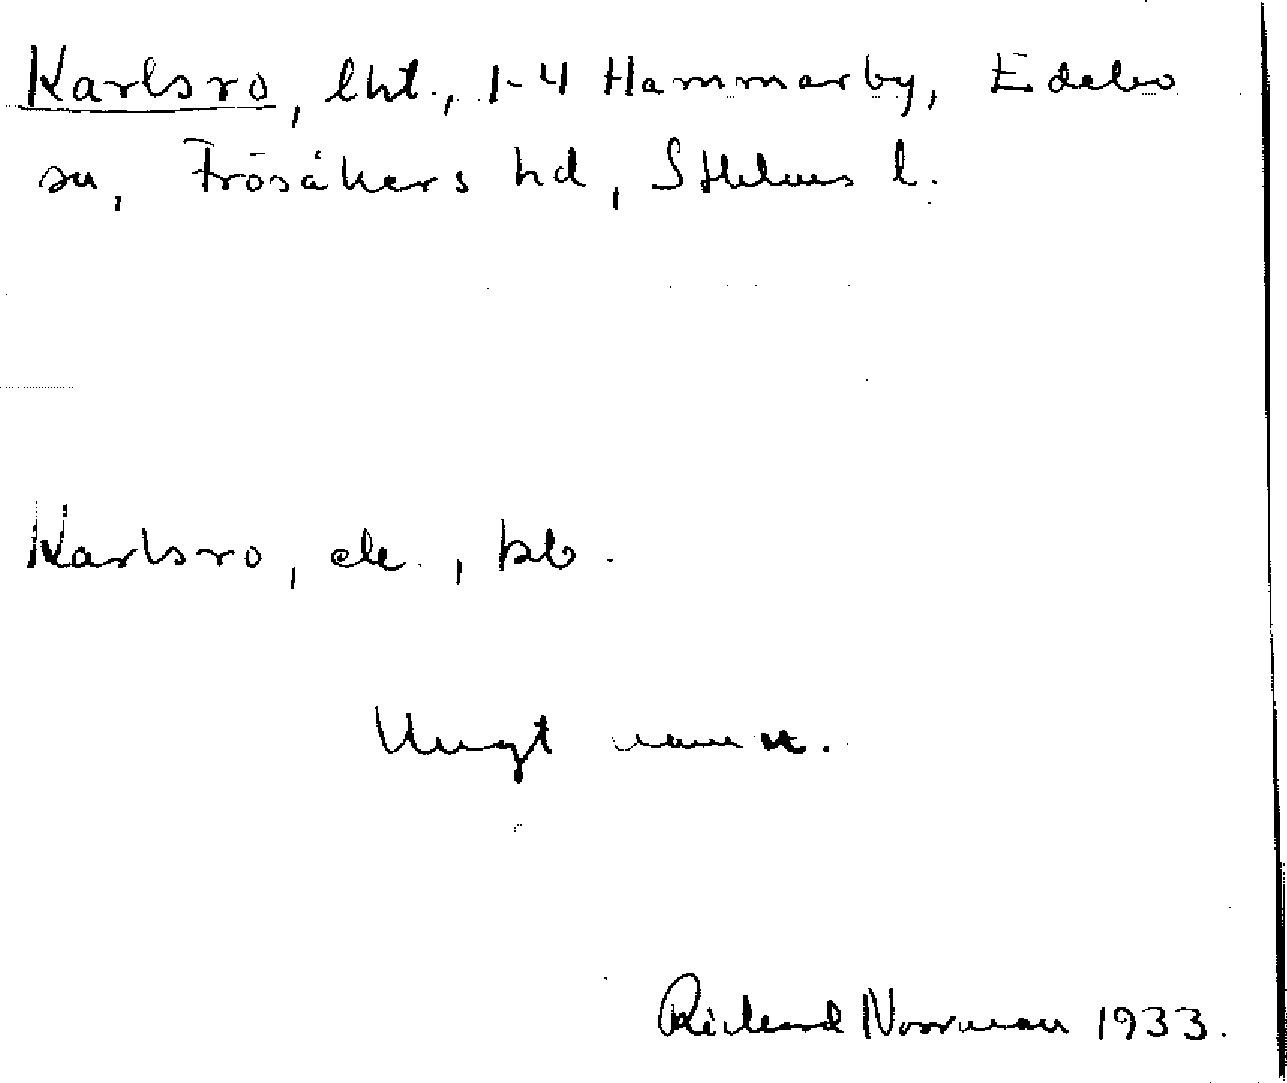 Karlsro, lht., 1-4 Hammarby, Edebo
sn, Frösåkers hd, Sthlms l.
Karlsro, ek., kb.
Ungt namn.
Rickard Norrman 1933.